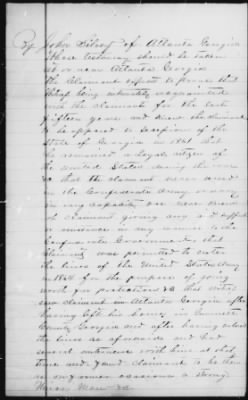 By John Silvey of Atlanta Georgia
whose testimony should be taken
at or near Atlanta Georgia
The claimant expects to prove that
being intimately acquainted
with the claimant for the last
fifteen years and knew the claimant
to be opposed to secession of the
State of Georgia in 1861 that
he remained a loyal citizen of
the United States during the war
that the claimant never served
in the Confederate Army or navy
in any capacity
of claimant giving any aid
or in any manner to the
Confederate Government, that
claimant was permitted to enter
the lines of the United States Army
in 1864 for the purpose of
and protection that
saw claimant in Atlanta Georgia after
having left his home in Gwinnett
County Georgia and after having entered
the lines as aforesaid and had
several with him at that
time and found claimant to be then
as on former occasions a strong
Union Man